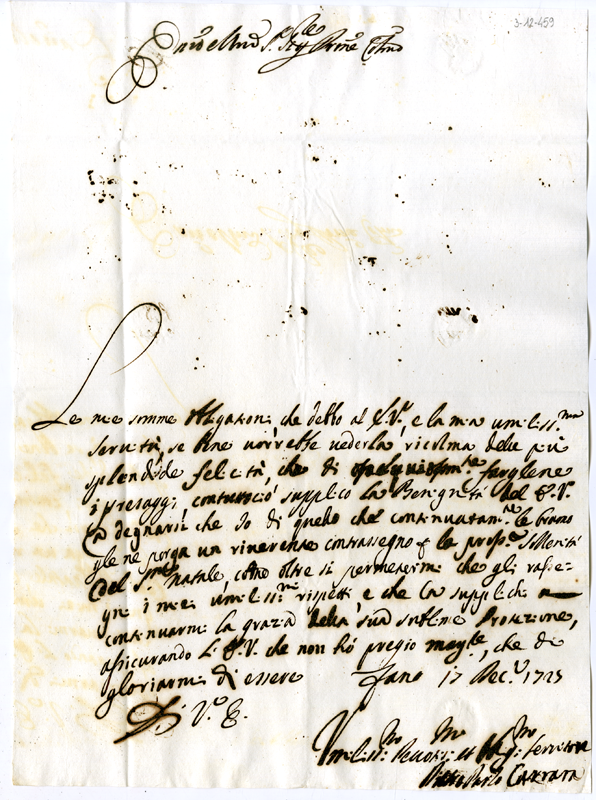 3-12-459
Le mie somme obligationi che debbo al E.V., e la mia umiliss.ma
servitù, se bene vorrebbe vederla ricolma delle più
splendide felicità, che di fargliene
i presaggi, contuttociò supplico la Benignità del E.V.
a degnarsi che Io di quelle che continuatam.te le bramo
gle ne porga un riverente contrassegno le pross.e sollenità
del S.mo Natale, oltre si permetermi che gli rasse-
gni i miei umiliss.mi rispetti e che la supplichi a
continuarmi la grazia della sua sublime Protezione,
assicurando L'E.V. che non hò pregio magre, che di
gloriarmi di essere Fano 17 Dec. 1723
Di V. E.
Umiliss.mo Devotis.mo et Obl.mo Servitore
Carrara